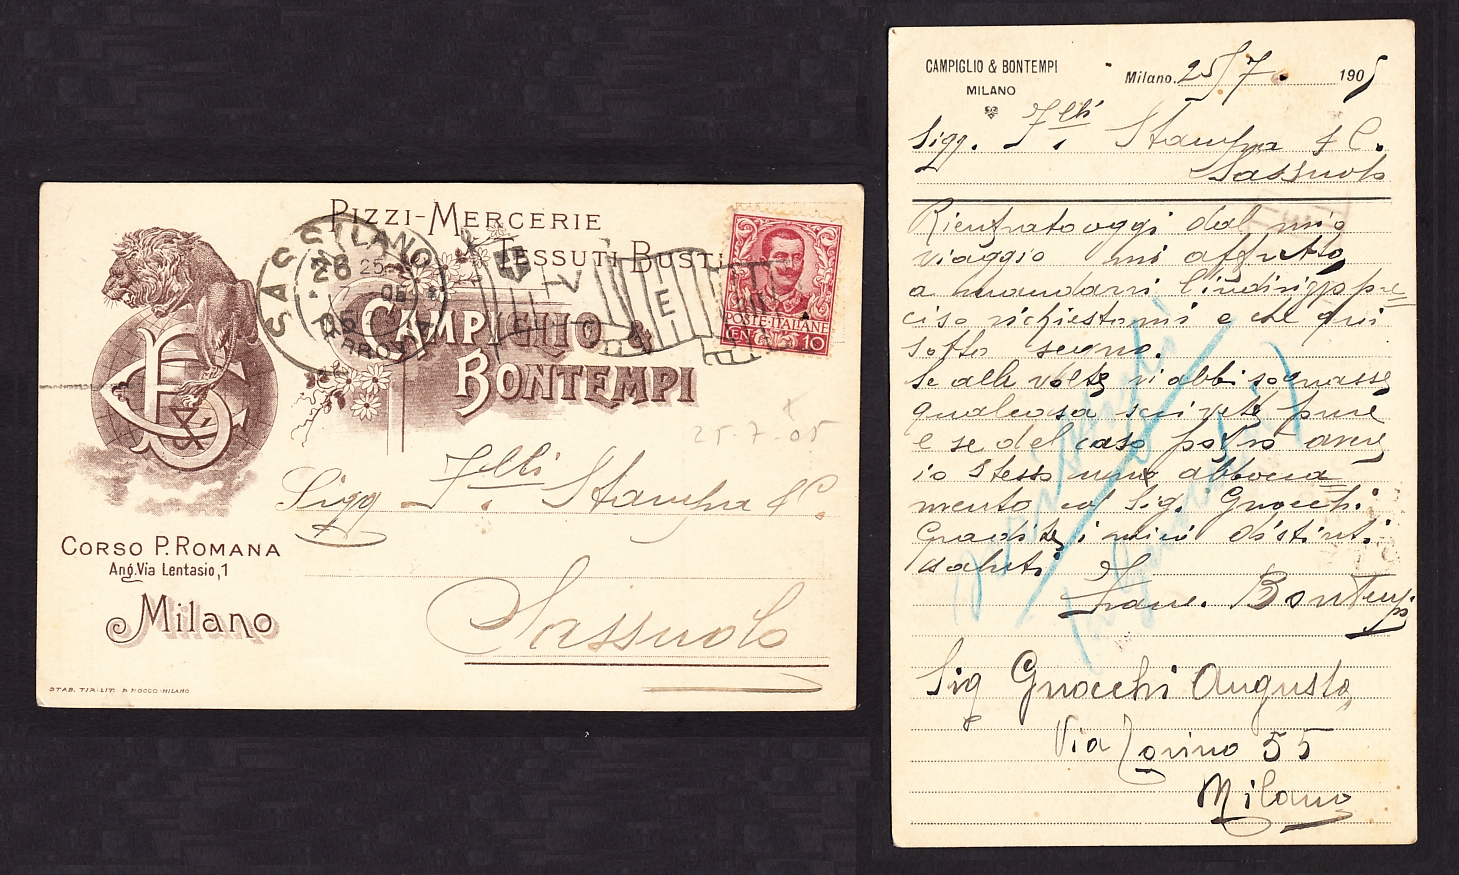 PIZZI-MERCERIE
TESSUTI BUSTI
CAMPIGLIO &
BONTEMPI
POSTE·ITALIANE
CEN. 10
SASSUOLO
MILANO
FERROVIA
26
25
7
05
25-7-05
Sigg Flli Stampa & C.
Sassuolo
CORSO P. ROMANA
Ang. Via Lentasio, 1
Milano
STAB. TIP. LIT. P. ROCCO-MILANO
CAMPIGLIO & BONTEMPI
MILANO
Milano. 25/7 1905
Sigg. Flli Stampa & C.
Sassuolo
Rientrato oggi dal mio
viaggio mi affretto
a mandarvi l'indirizzo pre
ciso richiestomi e che qui
sotto segno.
Se alle volte vi abbisognasse
qualcosa scivete pure
e se del caso potrò avere
io stesso un abbocca
mento col Sig. Gnocchi
Gradite i miei distinti
saluti
Franc. Bontempi
Sig Gnocchi Augusto
Via Torino 55
Milano